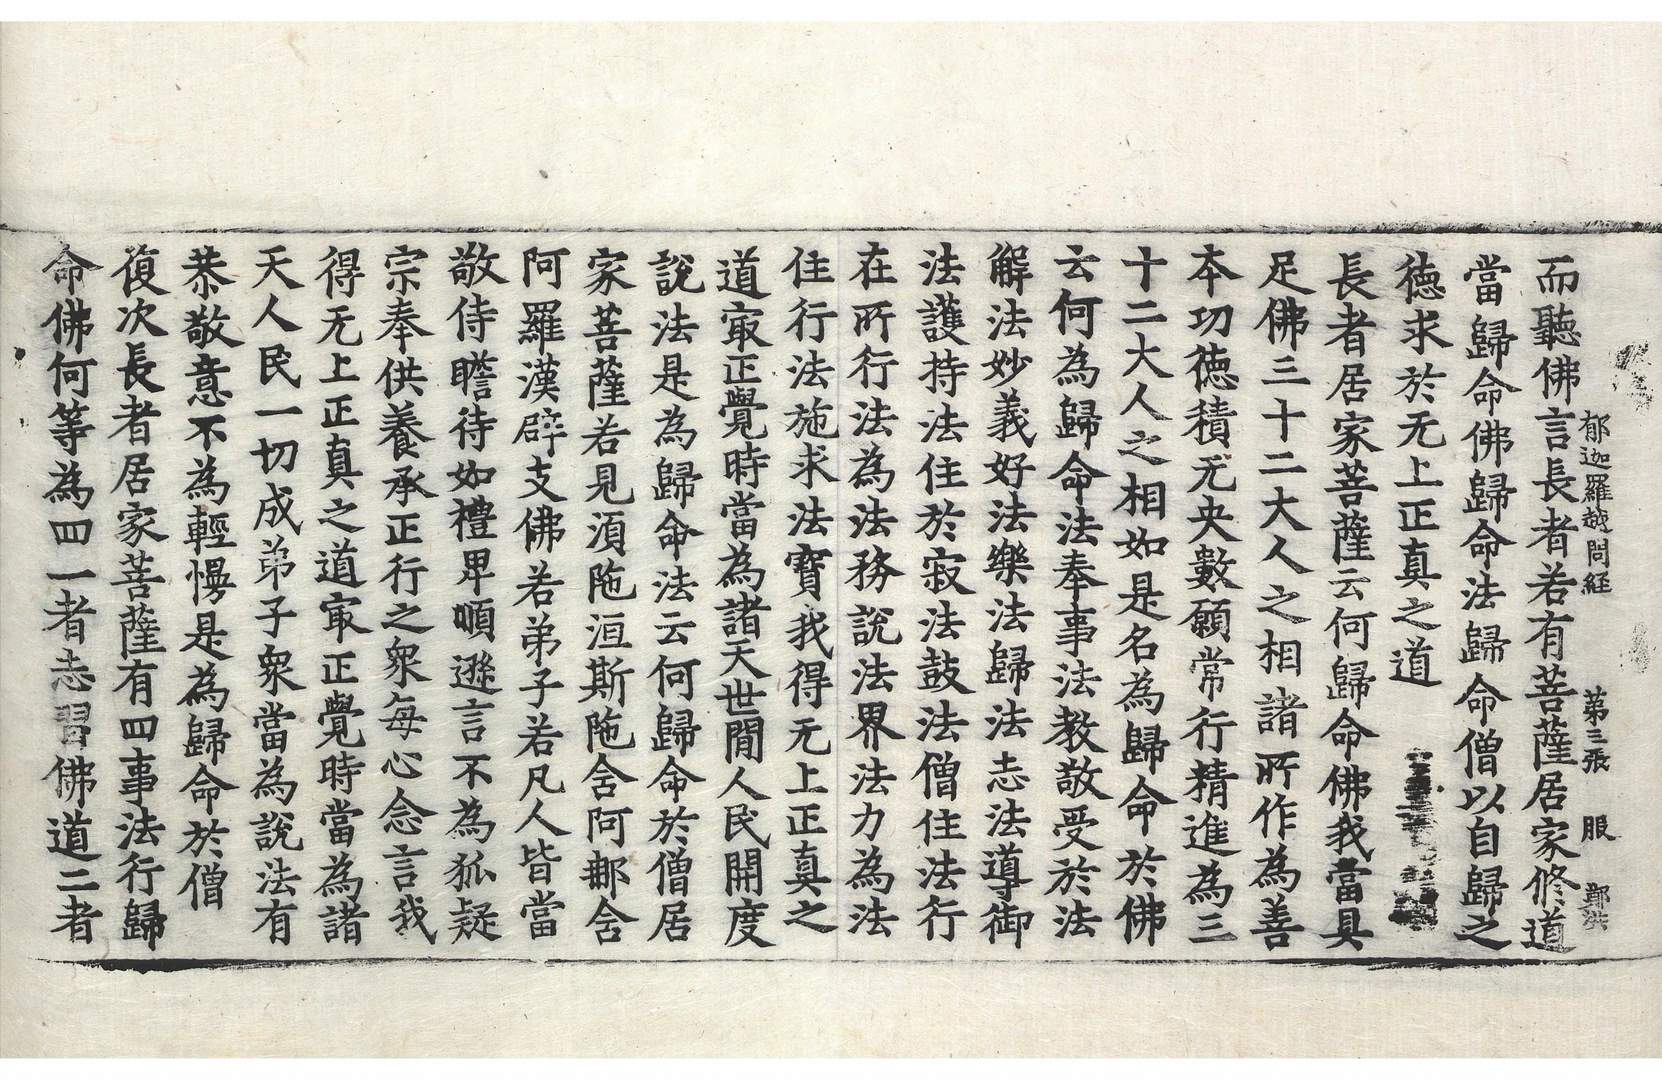 郁迦羅越問経　第三張　服　鄭洪
而聽佛言長者若有菩薩居家修道
當歸命佛歸命法歸命僧以自歸之
德求於无上正真之道
長者居家菩薩云何歸命佛我當具
足佛三十二大人之相諸所作為善
本功德積无央數願常行精進為三
十二大人之相如是名為歸命於佛
云何為歸命法奉事法教敬受於法
解法妙義好法樂法歸法志法導御
法護持法住於寂法鼓法僧住法行
在所行法為法務說法界法力為法
住行法施求法寶我得无上正真之
道㝡正覺時當為諸天世間人民開度
說法是為歸命法云何歸命於僧居
家菩薩若見湏陁洹斯陁含阿郍含
阿羅漢辟支佛若弟子若凡人皆當
敬侍瞻待如禮卑順遜言不為狐疑
宗奉供養承正行之衆每心念言我
得无上正真之道㝡正覺時當為諸
天人民一切成弟子衆當為說法有
恭敬意不為輕慢是為歸命於僧
復次長者居家菩薩有四事法行歸
命佛何等為四一者志習佛道二者